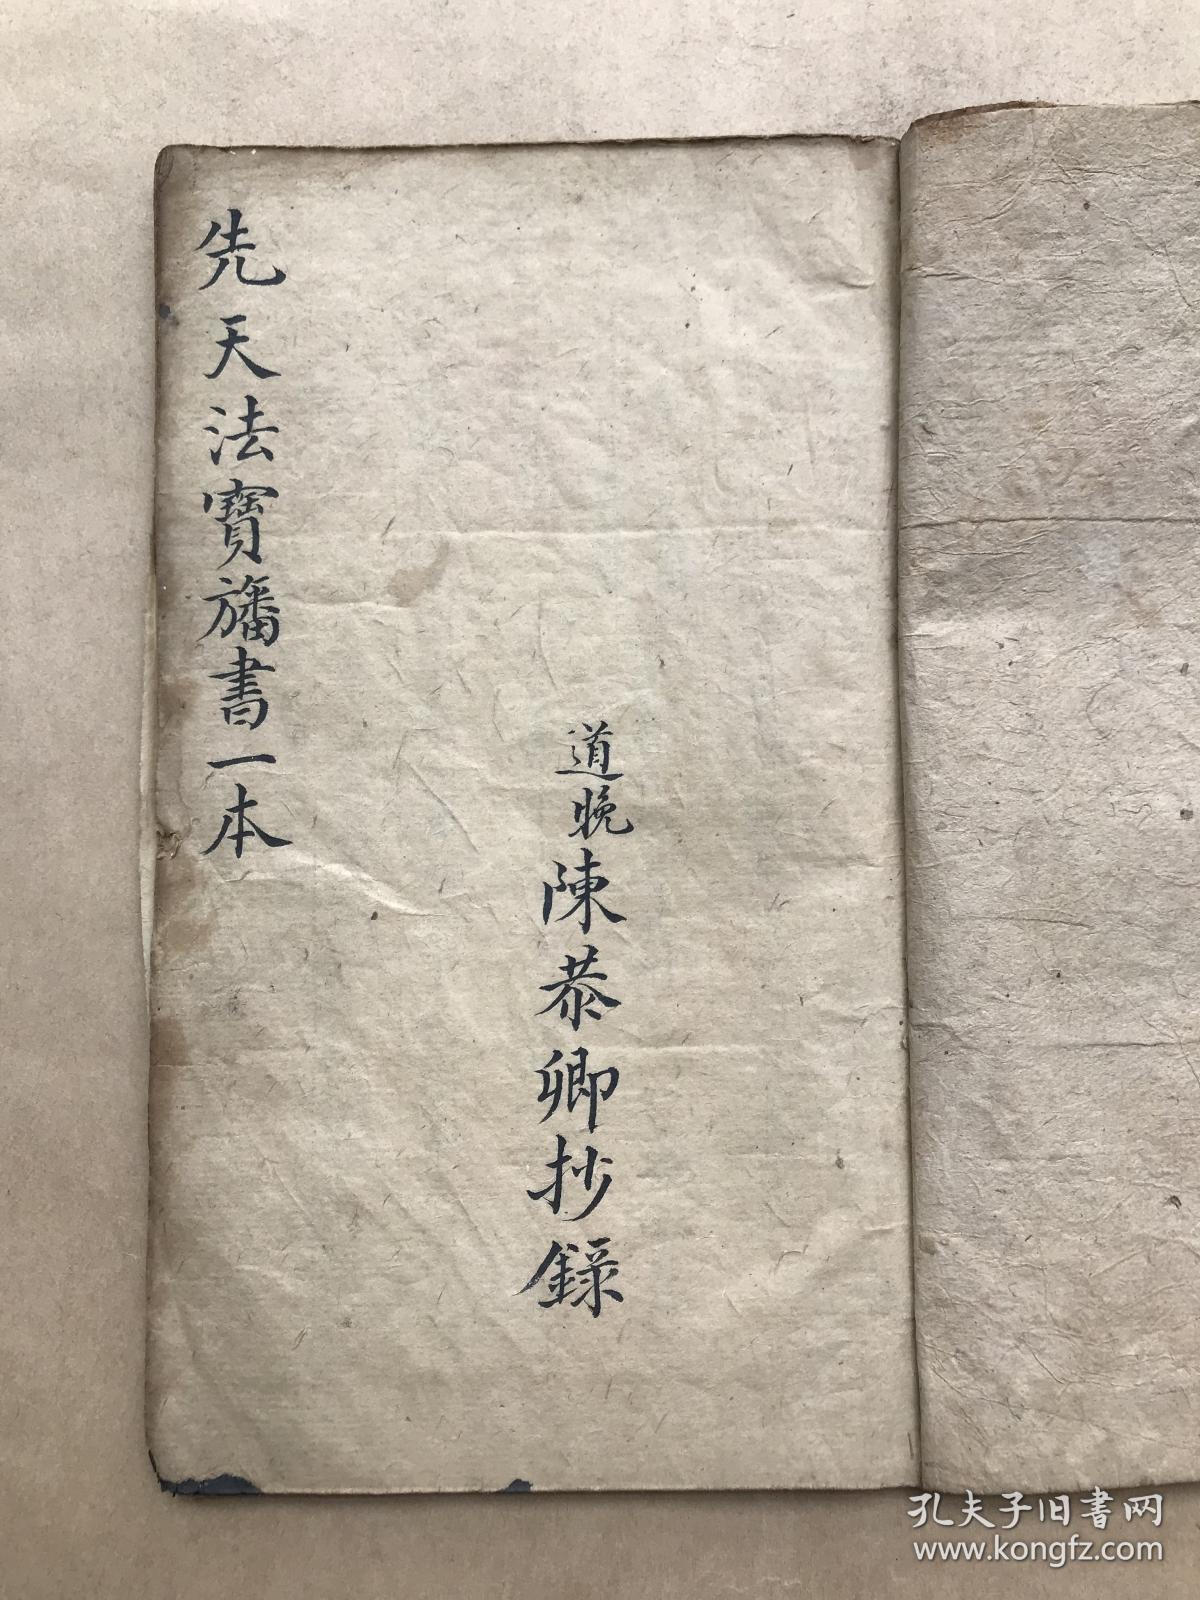 先天法寶旛書一本
道晚陳恭卿抄録
孔夫子旧書网
www.kongfz.com